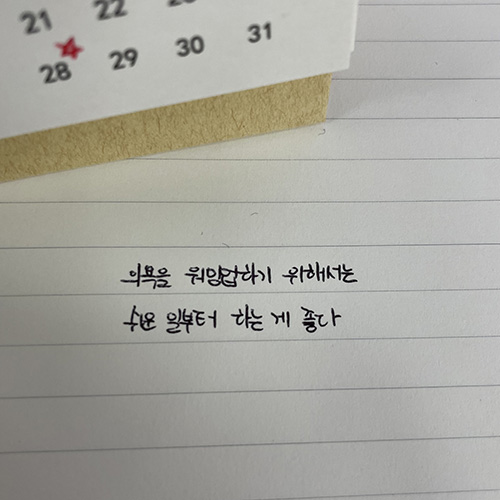 21 22
28 29 30 31
의욕을 워밍업하기 위해서는
쉬운 일부터 하는 게 좋다